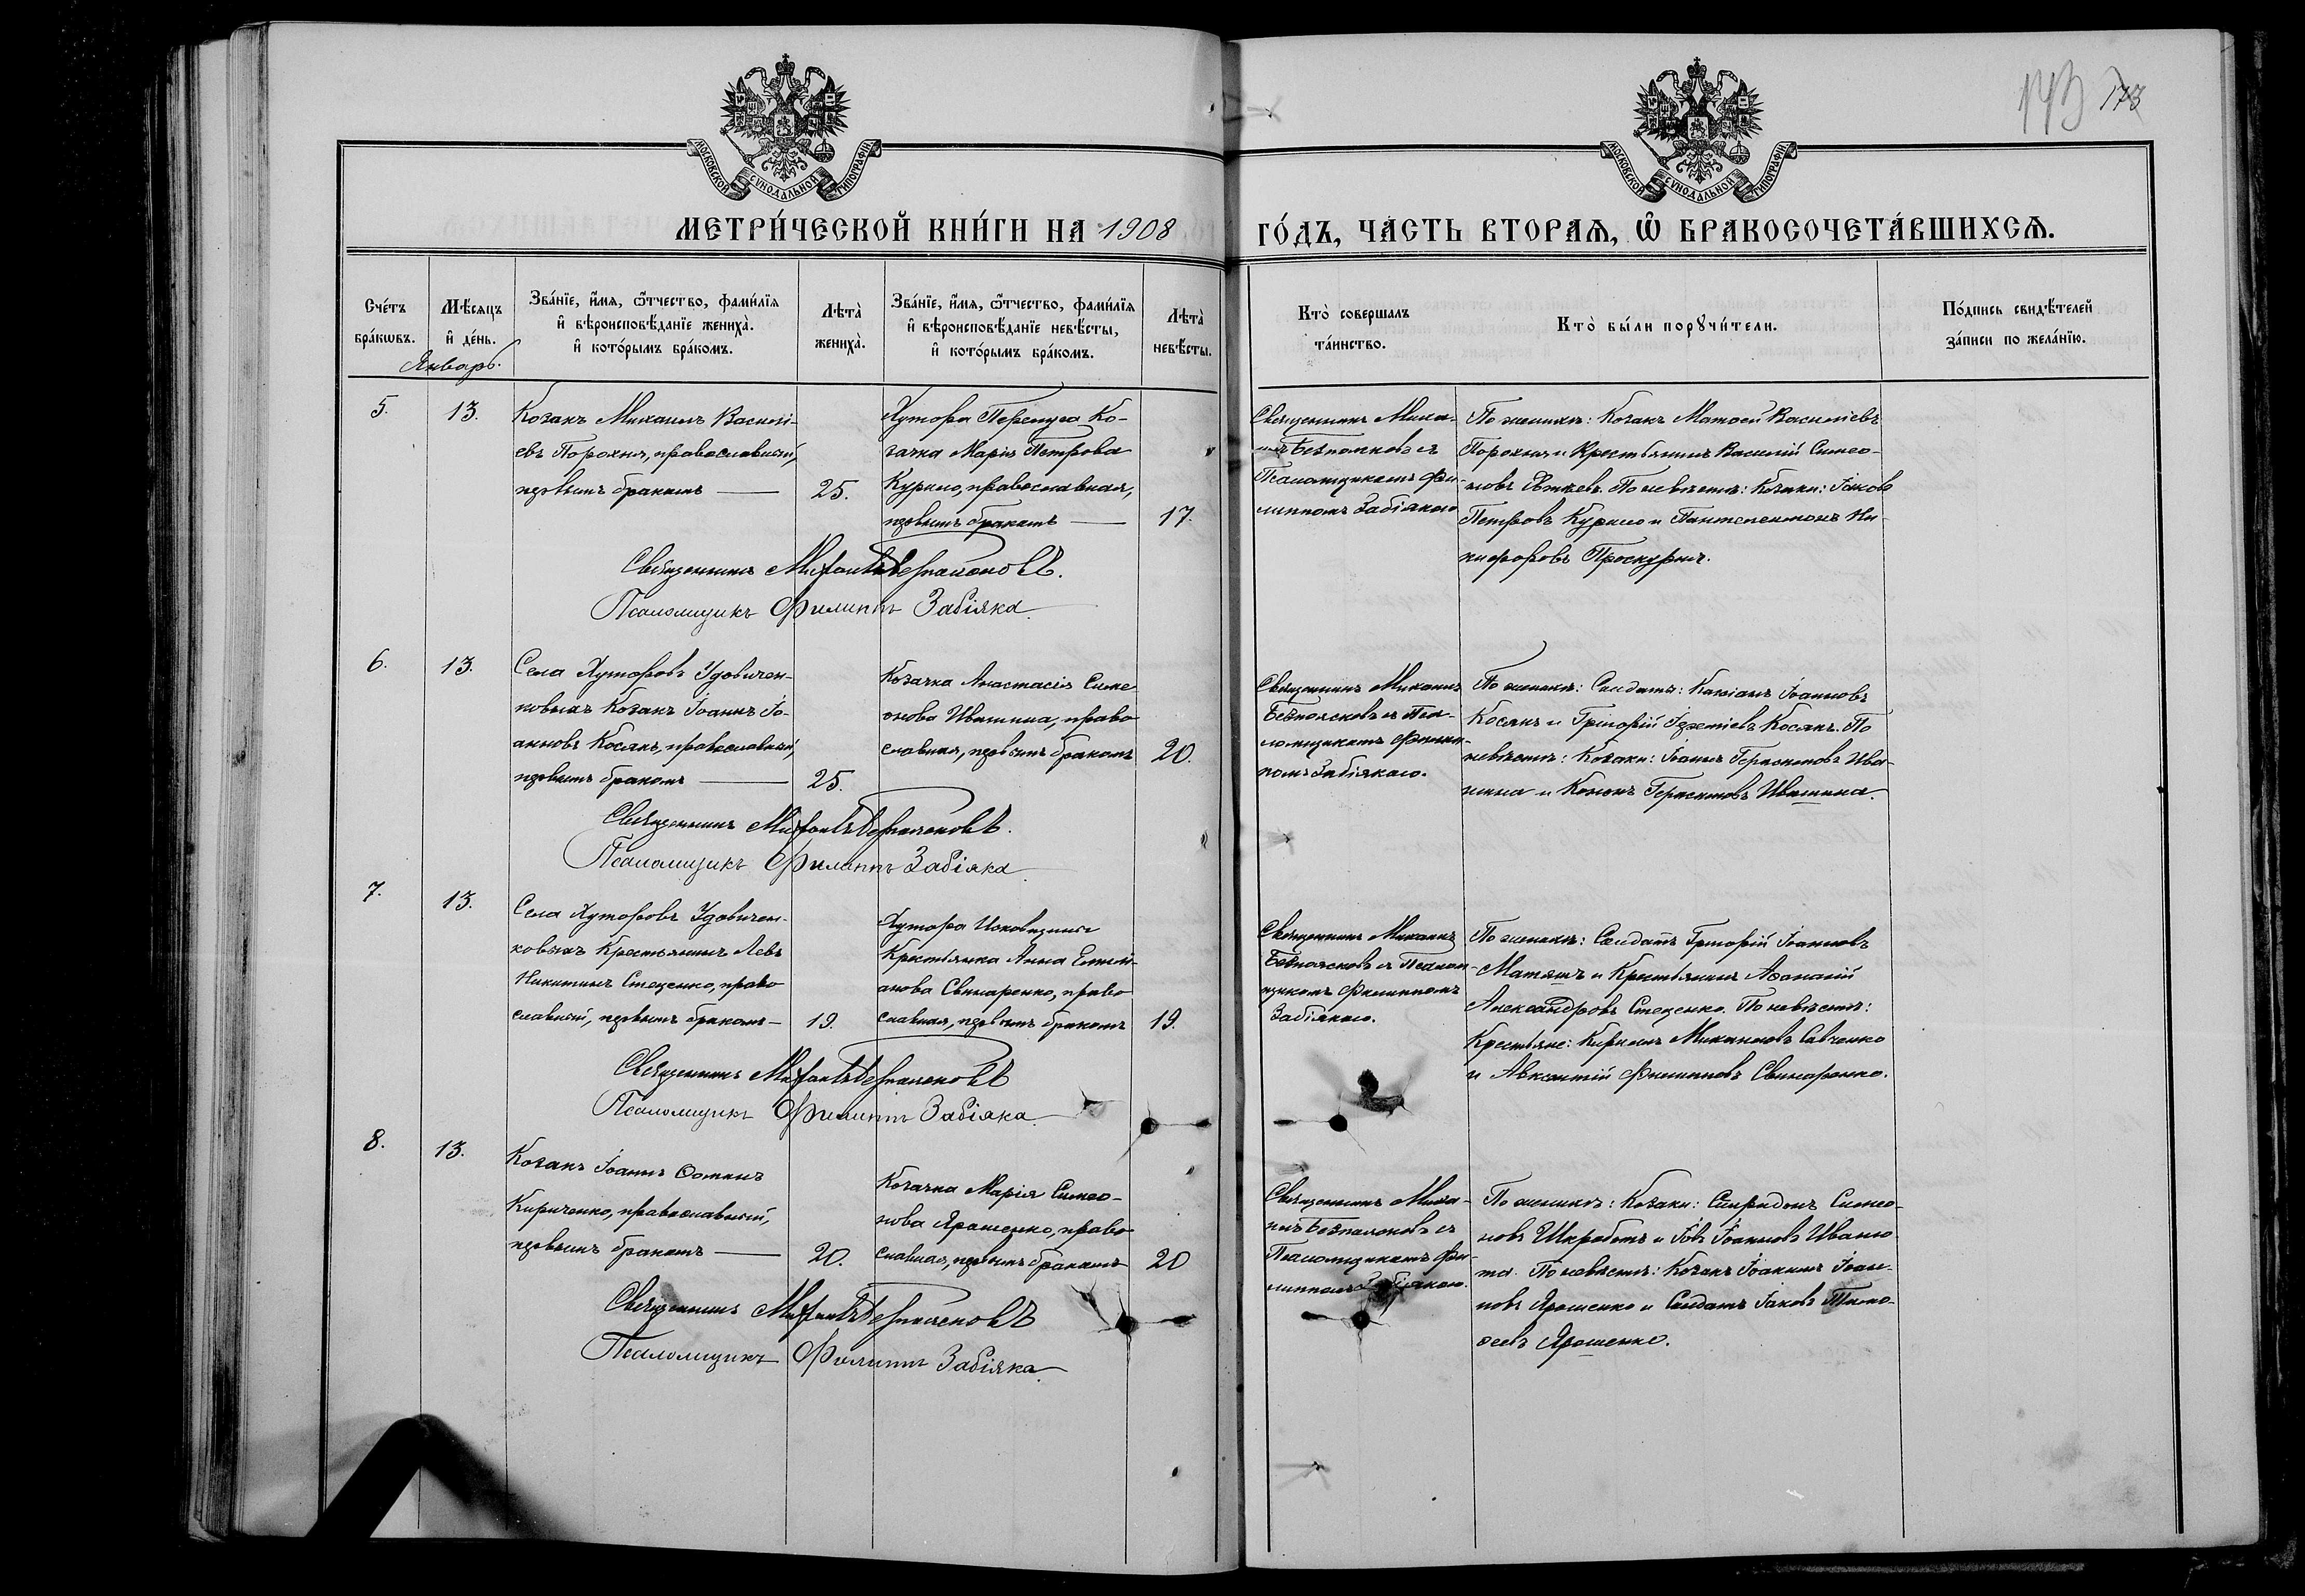 173
МОСКОВСКОЙ СѴНОДАЛЬНОЙ ТИПОГРАФІИ
МОСКОВСКОЙ СѴНОДАЛЬНОЙ ТИПОГРАФІИ
МЕТРИ́ЧЕСКОЙ КНИ́ГИ НА 1908 ГО́ДЪ, ЧА́СТЬ ВТОРАѦ, Ѽ БРАКОСОЧЕТА́ВШИХСѦ.
Сче́тъ бра́кѡвъ.
Мѣ́сяцъ и҆ де́нь.
Зва́нїе, и҆́мя, ѻ҆́тчество, фами́лїя и҆ вѣроисповѣ́данїе жениха̀. и҆ кото́рымъ бра́комъ.
Лѣта̀ жениха̀.
Зва́нїе, и҆́мя, ѻ҆́тчество, фами́лїя и҆ вѣроисповѣ́данїе невѣ́сты, и҆ кото́рымъ бра́комъ.
Лѣта̀ невѣ́сты.
Кто̀ совершалъ та́инство.
Кто̀ бы́ли порꙋчи́тели.
По́дпись свидѣ́телей за́писи по жела́нїю.
Январь.
5.
13.
Козакъ Михаилъ Василі-
евъ Порохня, православный,
первымъ бракомъ
25.
Хутора Перепуса Ко-
зачка Марія Петрова
Курило, православная,
первымъ бракомъ
17.
Священникъ Миха-
илъ Безпаловъ съ
Псаломщикомъ Фи-
липпомъ Забіякою
По женихѣ: Козакъ Матѳей Василіевъ
Порохня и Крестьянинъ Василій Симео-
новъ По невѣстѣ: Козаки: Іаковъ
Петровъ Курило и Пантелеимонъ Ни-
кифоровъ Проскурня.
Священникъ Михаилъ
Псаломщикъ Филиппъ Забіяка
6.
13.
Села Хуторовъ Удовичен-
ковыхъ Козакъ Іоаннъ Іо-
анновъ Косякъ, православный,
первымъ бракомъ
25.
Козачка Анастасія Симе
онова Ивашина, право
славная, первымъ бракомъ
20.
Священникъ Михаилъ
съ Пса-
ломщикомъ Филип-
помъ Забіякою.
По женихѣ: Солдатъ: Кассіанъ Іоанновъ
Косякъ и Григорій Косякъ. По
невѣстѣ: Козаки: Іоаннъ Герасимовъ Ива-
шина и Кононъ Герасимовъ Ивашина.
Священникъ Михаилъ
Псаломщикъ Филиппъ Забіяка
7.
13.
Села Хуторовъ Удовичен-
ковыхъ Крестьянинъ Левъ
Никитинъ Стеценко, право
славный, первымъ бракомъ
19.
Хутора
Крестьянка Анна Емели-
анова Свинаренко, право
славная, первымъ бракомъ
19.
Священникъ Михаилъ
съ Псалом-
щикомъ Филиппомъ
Забіякою.
По женихѣ: Солдатъ Григорій Іоанновъ
Матяшъ и Крестьянинъ Аѳанасій
Александровъ Стеценко. По невѣстѣ:
Крестьяне: Кириллъ Михаиловъ Савченко
и Авксентій Филипповъ Свинаренко.
Священникъ Михаилъ
Псаломщикъ Филиппъ Забіяка
8.
13.
Козакъ Іоаннъ Ѳоминъ
Кириченко, православный,
первымъ бракомъ
20.
Козачка Марія Симео-
нова Ярошенко, право
славная, первымъ бракомъ
20
Священникъ Миха-
илъ съ
Псаломщикомъ Фи-
липпомъ Забіякою.
По женихѣ: Козаки: Спиридонъ Симео-
новъ Шкроботъ и Іовъ Іоанновъ
По невѣстѣ: Козакъ Іоакимъ Іоан-
новъ Ярошенко и Солдатъ Іаковъ Тимо-
ѳеевъ Ярошенко.
Священникъ Михаилъ
Псаломщикъ Филиппъ Забіяка